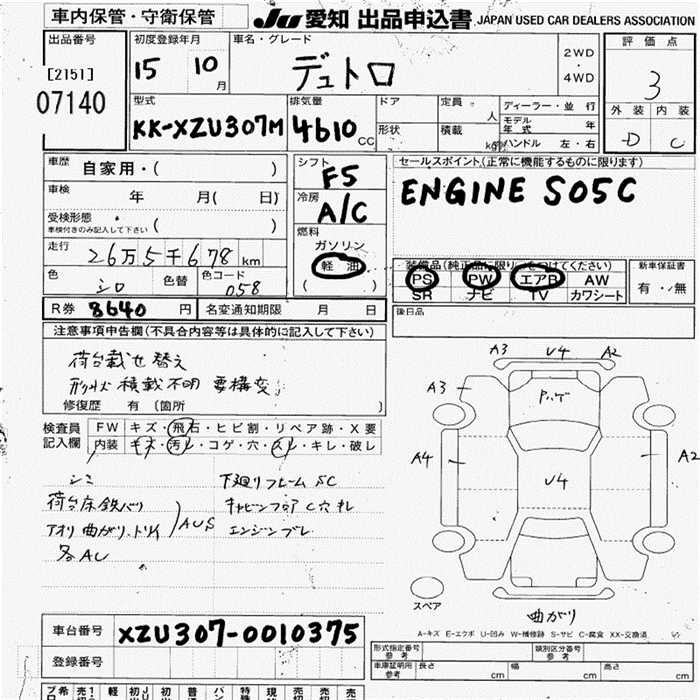 車内保管・守衛保管
JU 愛知 出品申込書 JAPAN USED CAR DEALERS ASSOCIATION
出品番号
[2151]
07140
初度登録年月
15 10 月
車名・グレード
デュトロ
2WD
・
4WD
評価点
3
外装 内装
D C
型式
KK-XZU307M
排気量
4610 CC
ドア
形状
定員 人
積載
ディーラー・並行
モデル年式 年
ハンドル 左・右
車歴 自家用・( )
車検 年 月( 日)
受検形態
車検付きのみ記入して下さい ( )
走行 26万5千678 km
色 シロ 色替 色コード 058
R券 8640 円 名変通知期限 月 日
シフト F5
冷房 A/C
燃料
ガソリン
軽油
( )
セールスポイント(正常に機能するものに限ります)
ENGINE S05C
装備品(純正品に限り○をつけてください)
PS PW エアB AW
SR ナビ TV カワシート
新車保証書
有・無
後日品
注意事項申告欄(不具合内容等は具体的に記入して下さい)
荷台載せ替え
形状 積載不明 要構変
修復歴 有 (箇所 )
検査員記入欄
FW キズ・飛石・ヒビ割・リペア跡・X要
内装 キズ・汚レ・コゲ・穴・スレ・キレ・破レ
シミ
荷台床鉄バリ
アオリ曲がり、トリイ AUS
各AU
下廻りフレームSC
キャビンフロアC穴
エンジンブレ
A3 U4 A2
A3
ハゲ
A4
U4
A2
スペア
曲がり
A-キズ E-エクボ U-凹み W-補修跡 S-サビ C-腐食 XX-交換済
車台番号 XZU307-0010375
登録番号
形式指定番号 参考
類別区分番号 参考
車庫証明用 参考 長さ cm 幅 cm 高さ cm